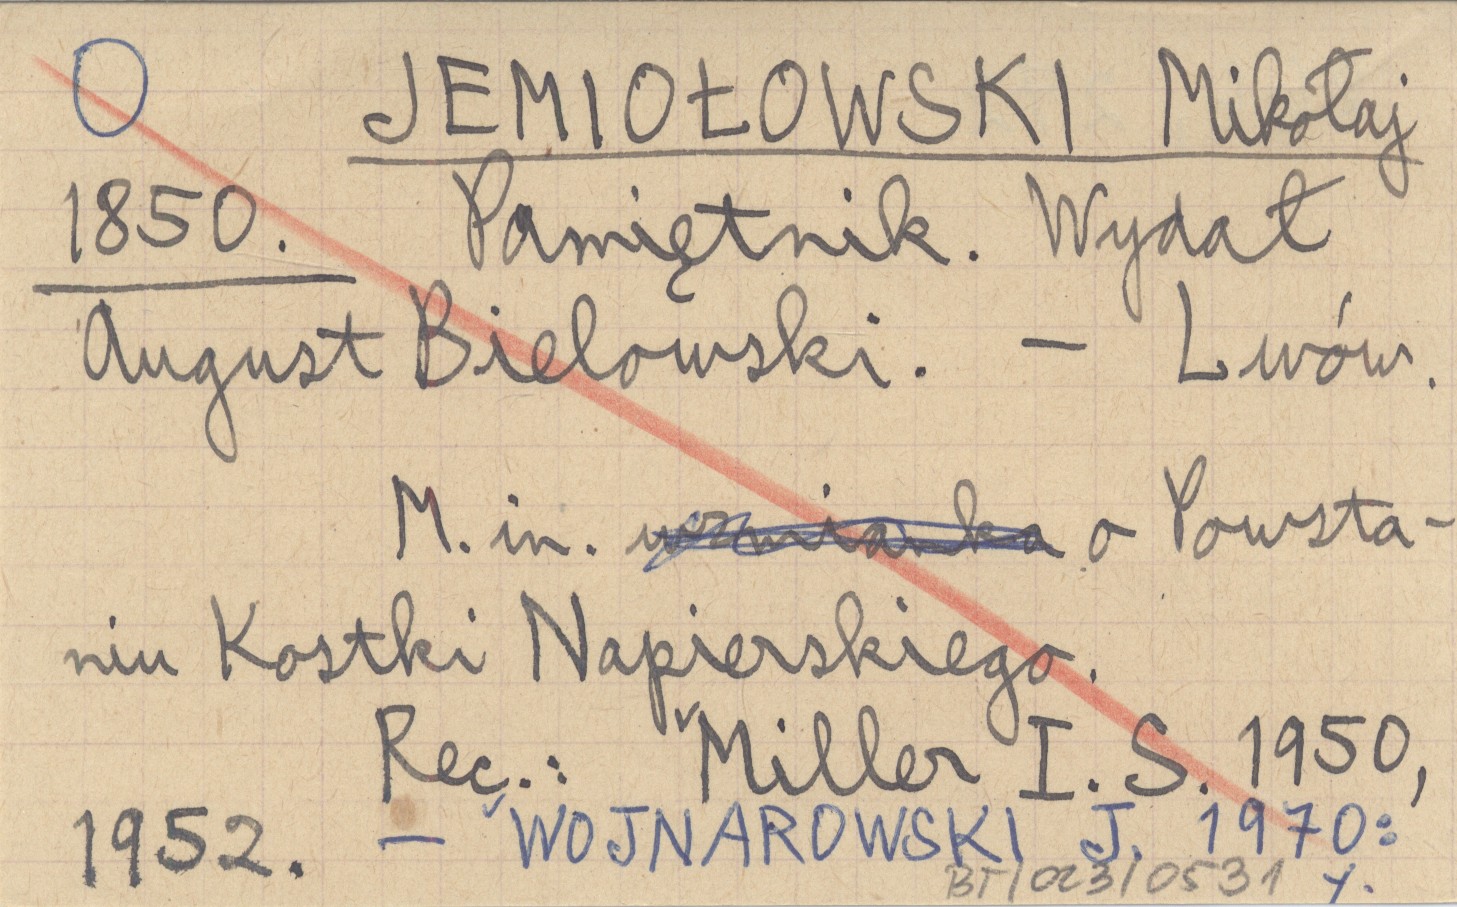 O JEMIOŁOWSKI Mikołaj
1850. Pamiętnik. Wydał
August Bielowski. – Lwów.
M. in. wzmianka o Powsta-
niu Kostki Napierskiego.
Rec.: Miller I. S. 1950,
1952. – WOJNAROWSKI J. 1970:
BT/023/0531 y.